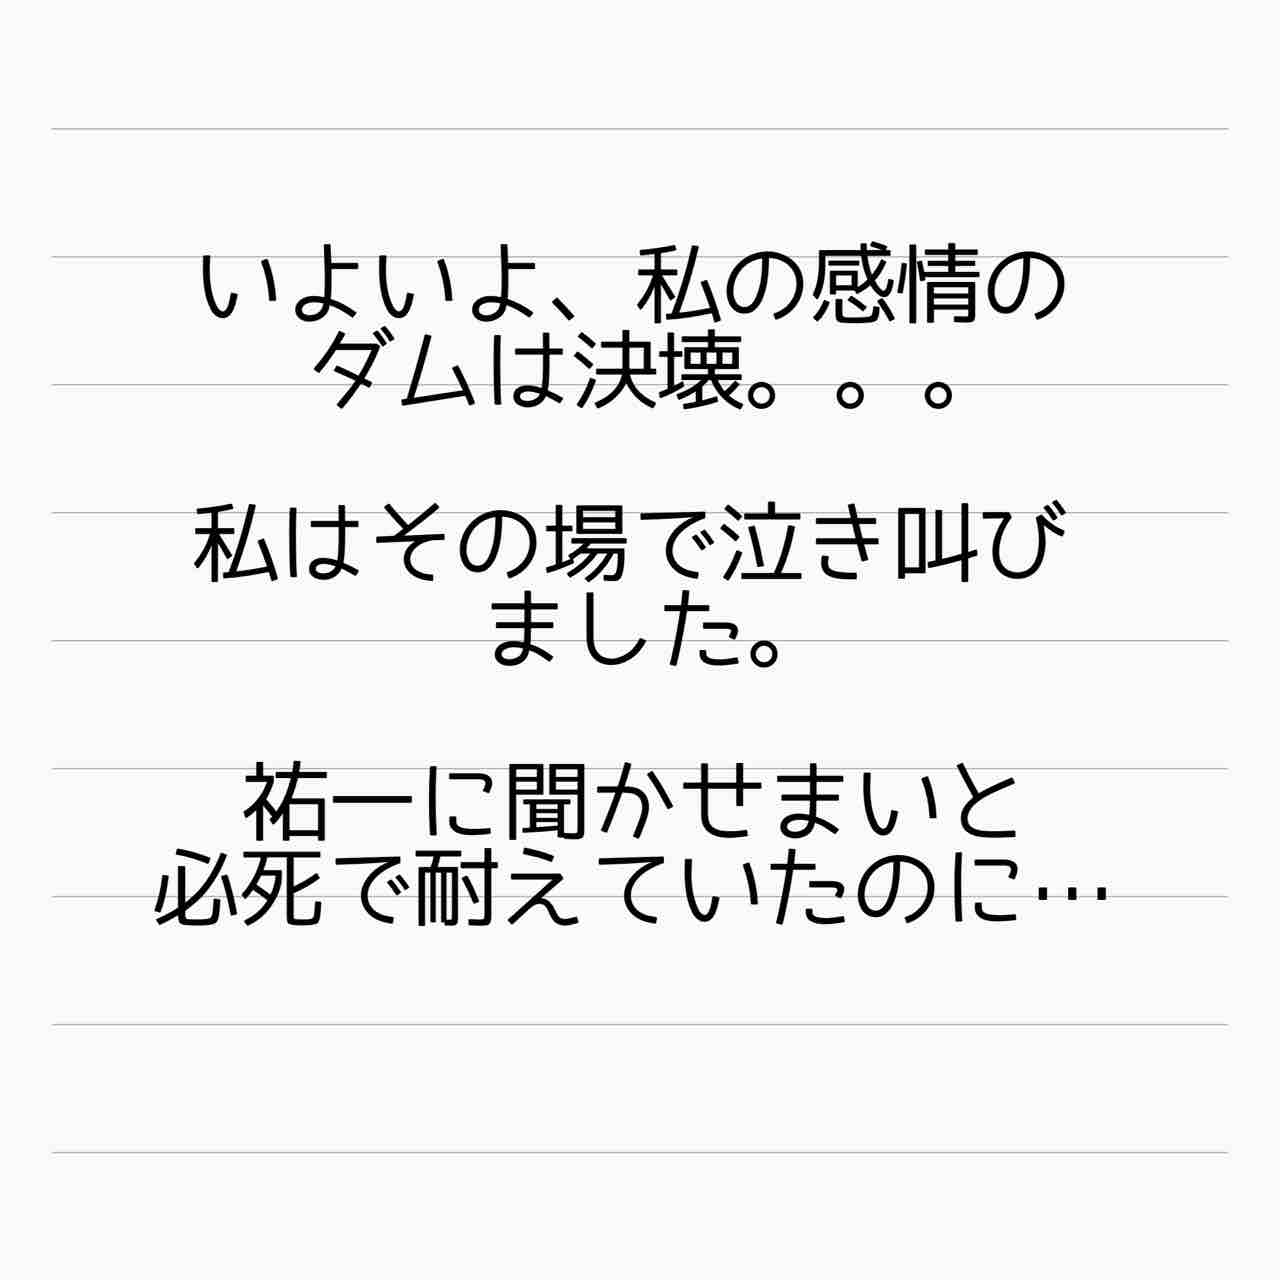 いよいよ、私の感情の
ダムは決壊。。。
私はその場で泣き叫び
ました。
祐一に聞かせまいと
必死で耐えていたのに…